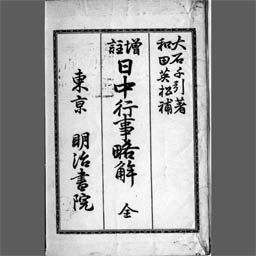 大石千引著
和田英松補
増註 日中行事略解 全
東京 明治書院